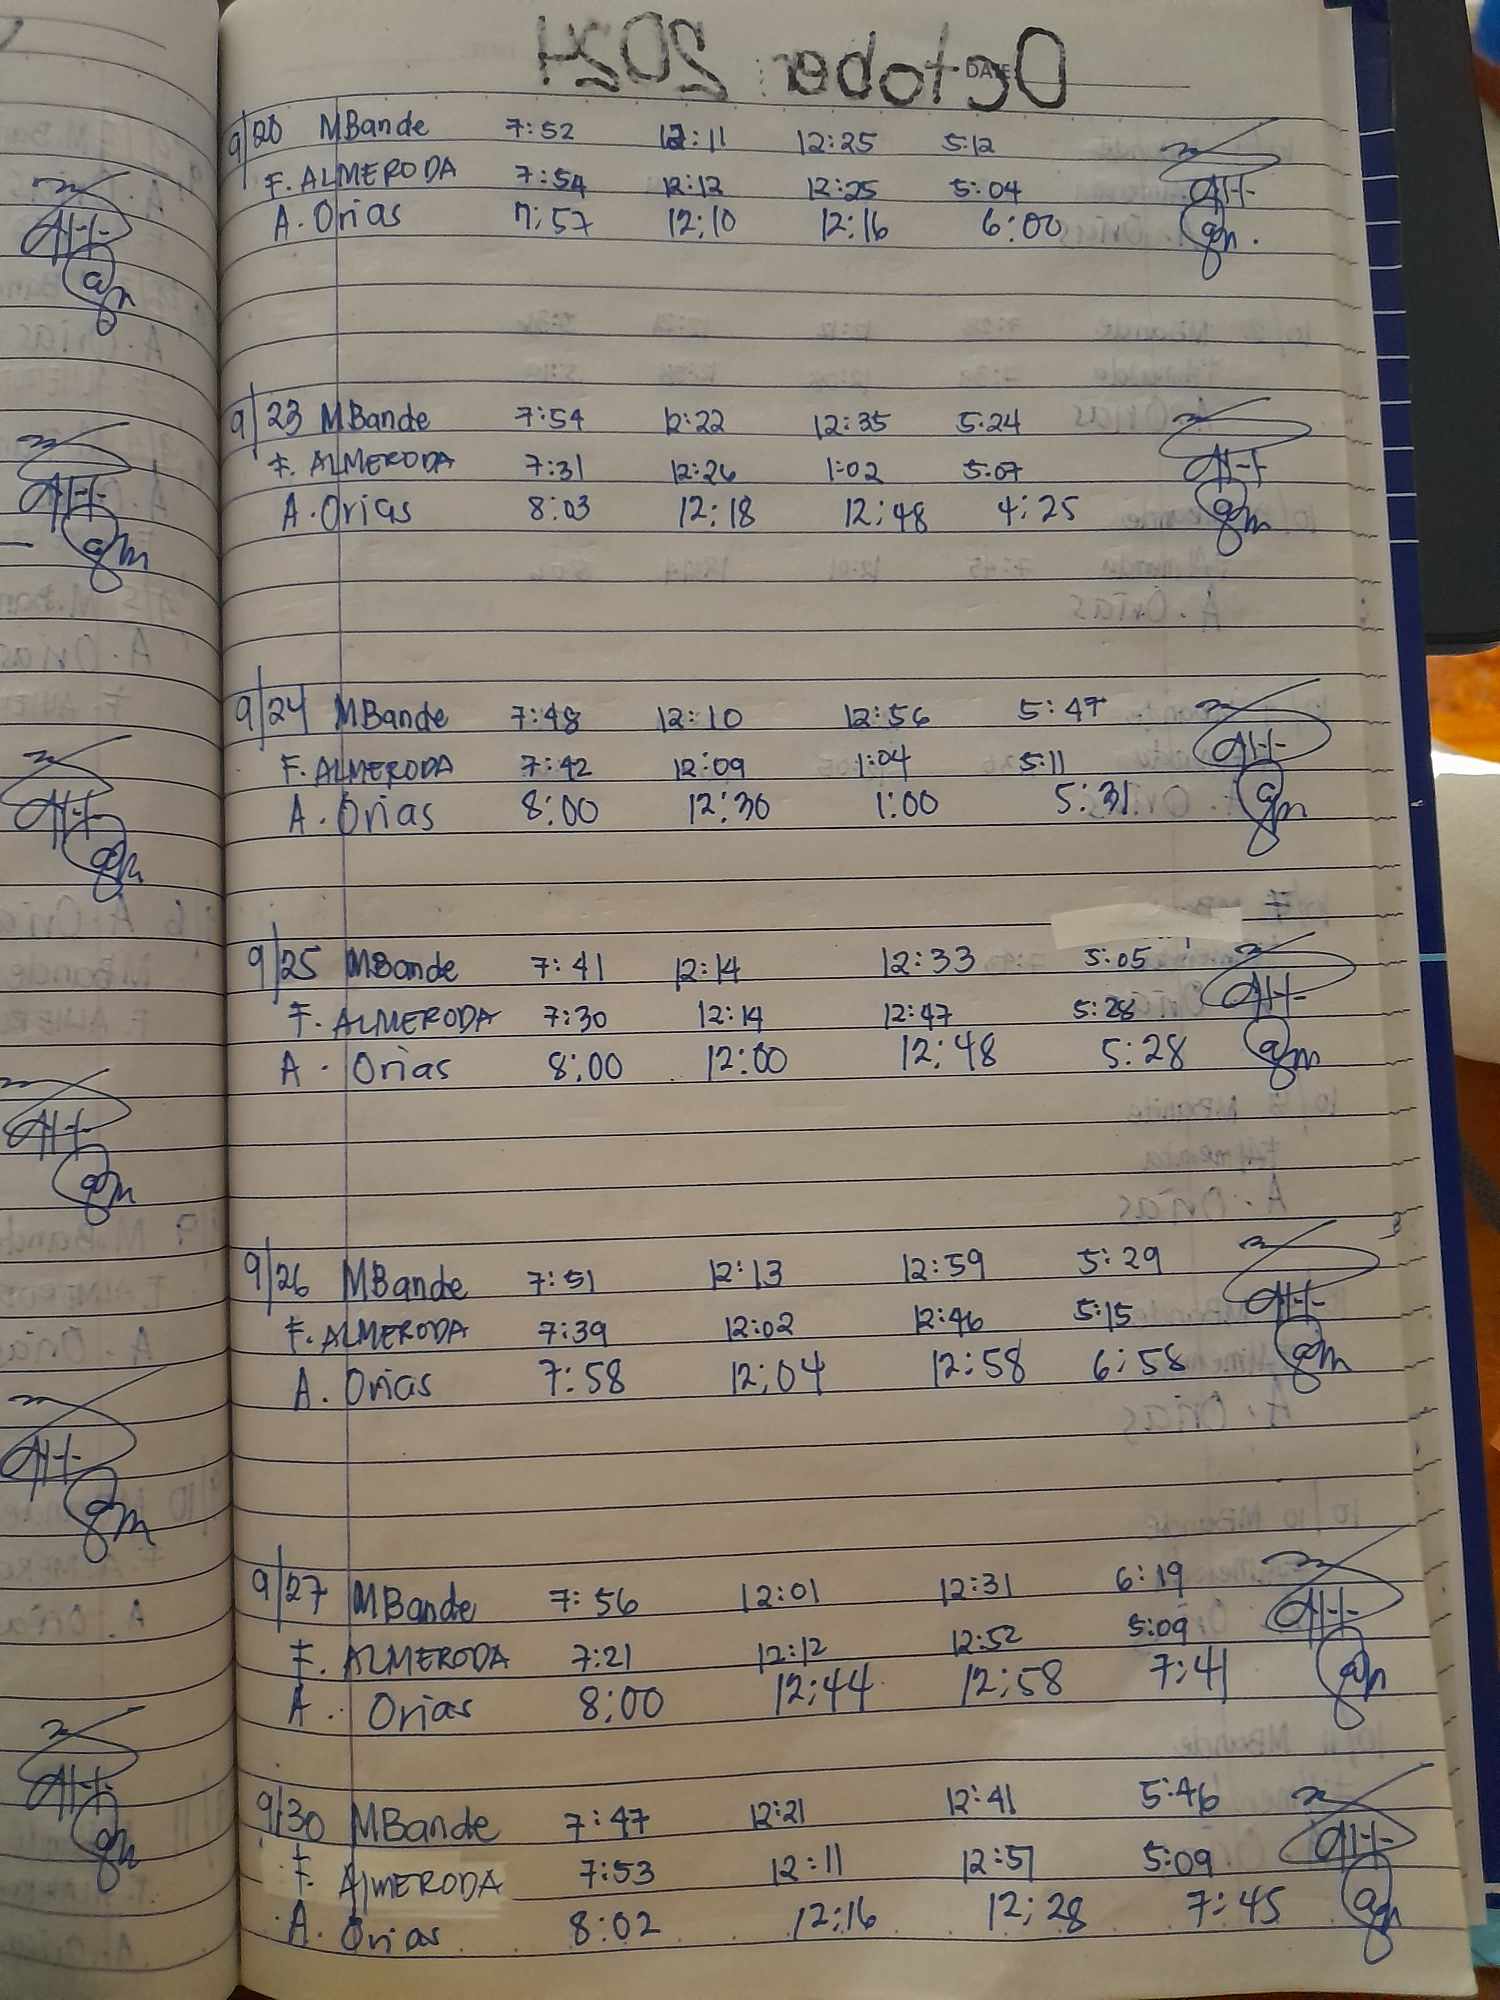 October 2024
DATE
9/20 MBande 7:52 12:11 12:25 5:12
F. ALMERODA 7:54 12:12 12:25 5:04
A. Orias 7:57 12:10 12:16 6:00
9/23 MBande 7:54 12:22 12:35 5:24
F. ALMERODA 7:31 12:26 1:02 5:07
A. Orias 8:03 12:18 12:48 4:25
9/24 MBande 7:48 12:10 12:56 5:47
F. ALMERODA 7:42 12:09 1:04 5:11
A. Orias 8:00 12:30 1:00 5:31
9/25 MBande 7:41 12:14 12:33 5:05
F. ALMERODA 7:30 12:14 12:47 5:28
A. Orias 8:00 12:00 12:48 5:28
9/26 MBande 7:51 12:13 12:59 5:29
F. ALMERODA 7:39 12:02 12:46 5:15
A. Orias 7:58 12:04 12:58 6:58
9/27 MBande 7:56 12:01 12:31 6:19
F. ALMERODA 7:21 12:12 12:52 5:09
A. Orias 8:00 12:44 12:58 7:41
9/30 MBande 7:47 12:21 12:41 5:46
F. AlMERODA 7:53 12:11 12:51 5:09
A. Orias 8:02 12:16 12:28 7:45